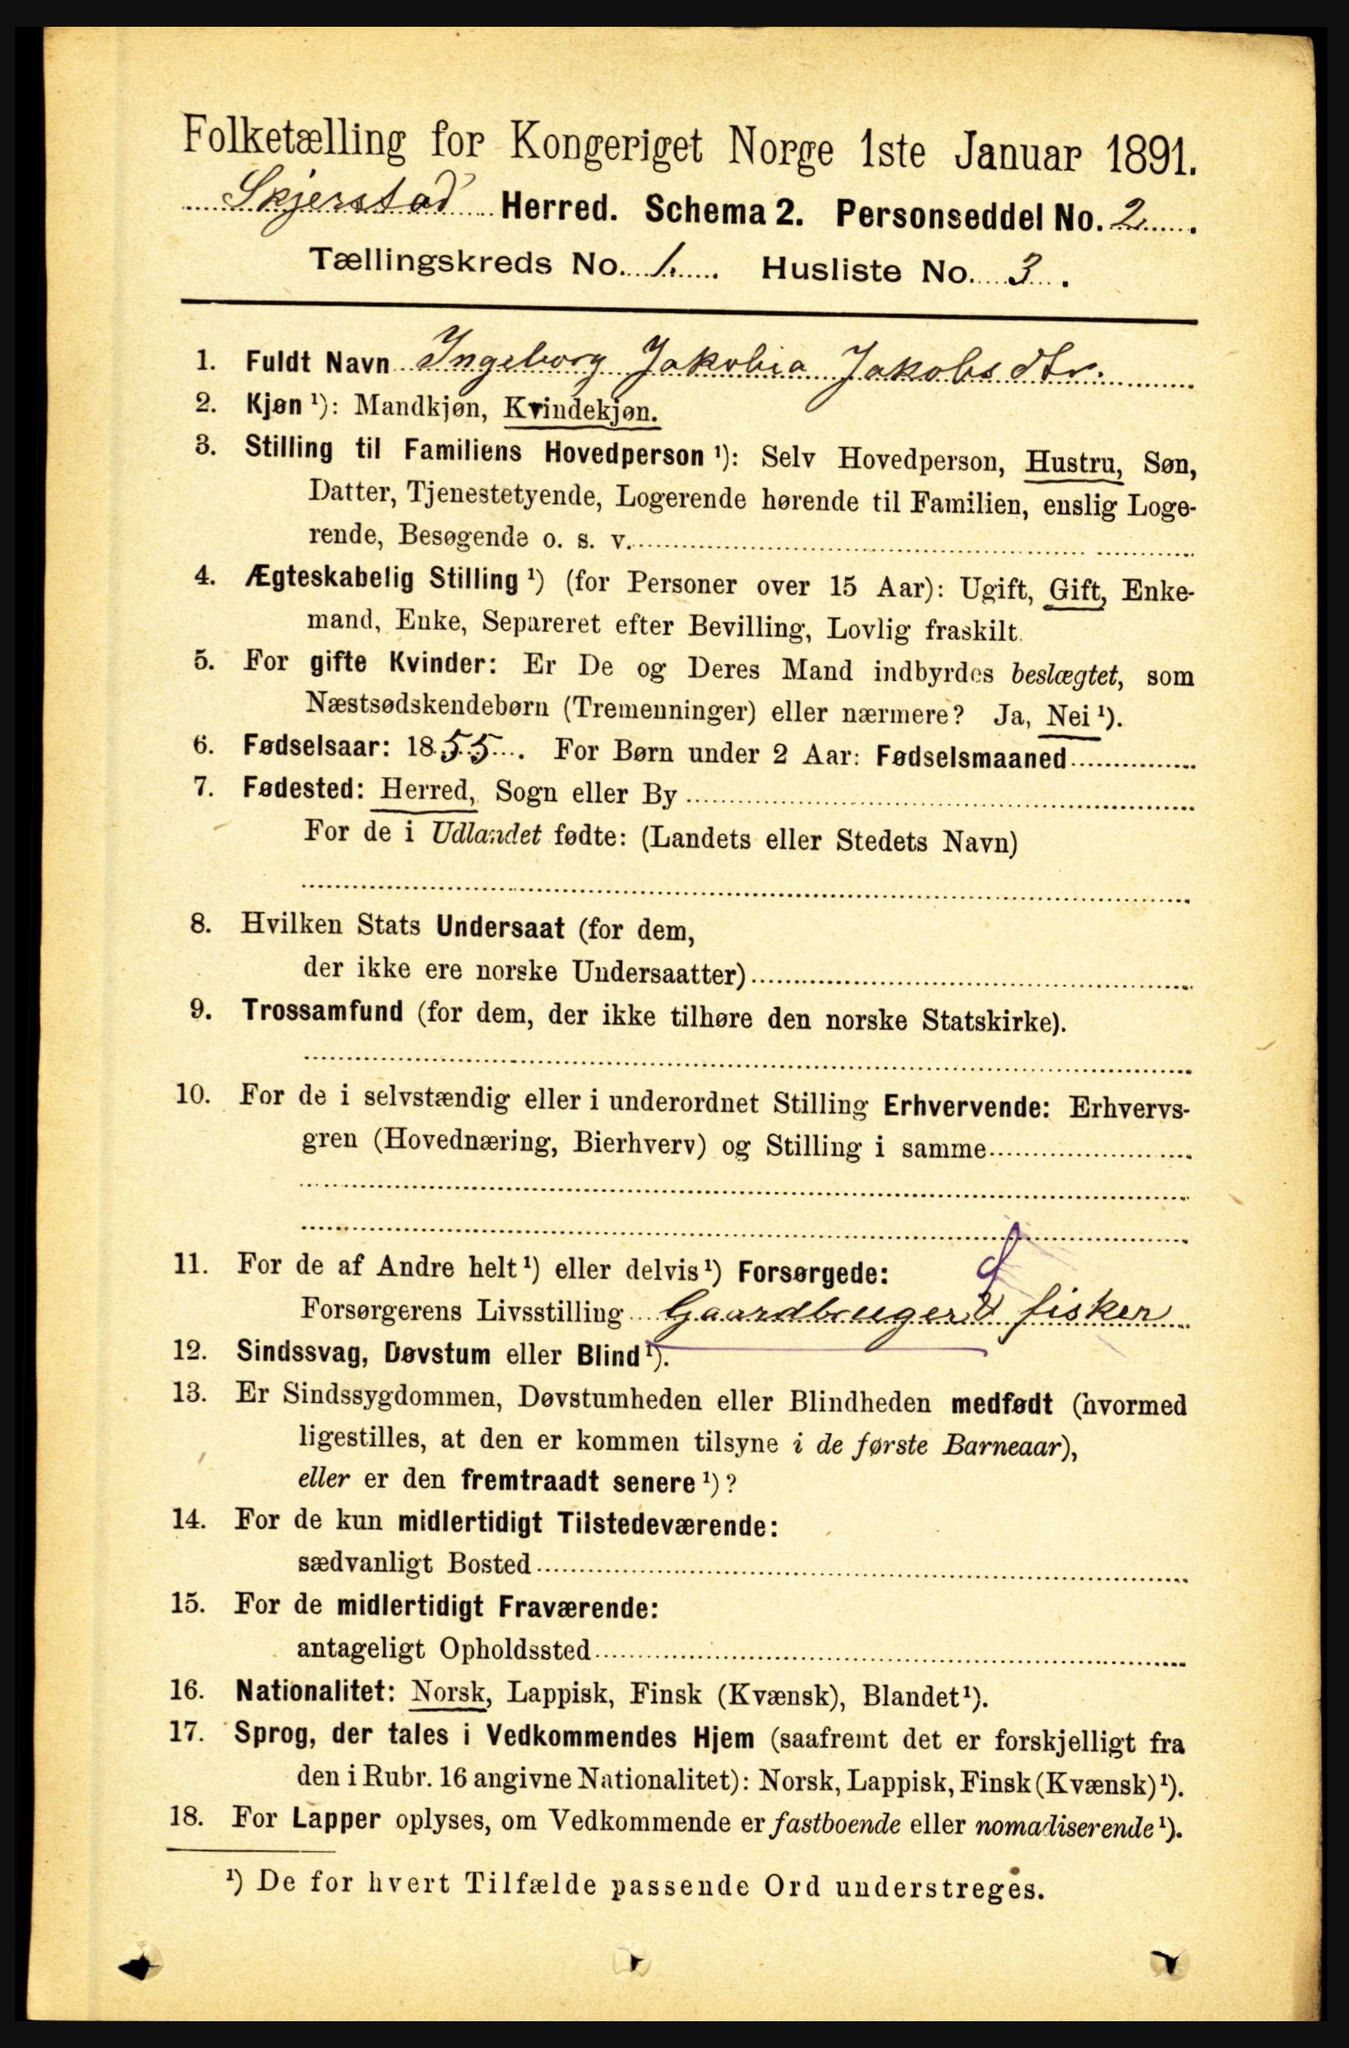 Folketælling for Kongeriget Norge 1ste Januar 1891.
Skjerstad Herred. Schema 2. Personseddel No. 2
Tællingskreds No. 1. Husliste No. 3.
1. Fuldt Navn Ingeborg Jakobia Jakobsdtr.
2. Kjøn ¹): Mandkjøn, Kvindekjøn.
3. Stilling til Familiens Hovedperson ¹): Selv Hovedperson, Hustru, Søn,
Datter, Tjenestetyende, Logerende hørende til Familien, enslig Loge-
rende, Besøgende o. s. v.
4. Ægteskabelig Stilling ¹) (for Personer over 15 Aar): Ugift, Gift, Enke-
mand, Enke, Separeret efter Bevilling, Lovlig fraskilt.
5. For gifte Kvinder: Er De og Deres Mand indbyrdes beslægtet, som
Næstsødskendebørn (Tremenninger) eller nærmere? Ja, Nei ¹).
6. Fødselsaar: 1855. For Børn under 2 Aar: Fødselsmaaned
7. Fødested: Herred, Sogn eller By
For de i Udlandet fødte: (Landets eller Stedets Navn)
8. Hvilken Stats Undersaat (for dem,
der ikke ere norske Undersaatter)
9. Trossamfund (for dem, der ikke tilhøre den norske Statskirke).
10. For de i selvstændig eller i underordnet Stilling Erhvervende: Erhvervs-
gren (Hovednæring, Bierhverv) og Stilling i samme
11. For de af Andre helt ¹) eller delvis ¹) Forsørgede:
Forsørgerens Livsstilling Gaardbruger & fisker
12. Sindssvag, Døvstum eller Blind ¹).
13. Er Sindssygdommen, Døvstumheden eller Blindheden medfødt (hvormed
ligestilles, at den er kommen tilsyne i de første Barneaar),
eller er den fremtraadt senere ¹)?
14. For de kun midlertidigt Tilstedeværende:
sædvanligt Bosted
15. For de midlertidigt Fraværende:
antageligt Opholdssted
16. Nationalitet: Norsk, Lappisk, Finsk (Kvænsk), Blandet ¹).
17. Sprog, der tales i Vedkommendes Hjem (saafremt det er forskjelligt fra
den i Rubr. 16 angivne Nationalitet): Norsk, Lappisk, Finsk (Kvænsk) ¹).
18. For Lapper oplyses, om Vedkommende er fastboende eller nomadiserende ¹).
¹) De for hvert Tilfælde passende Ord understreges.